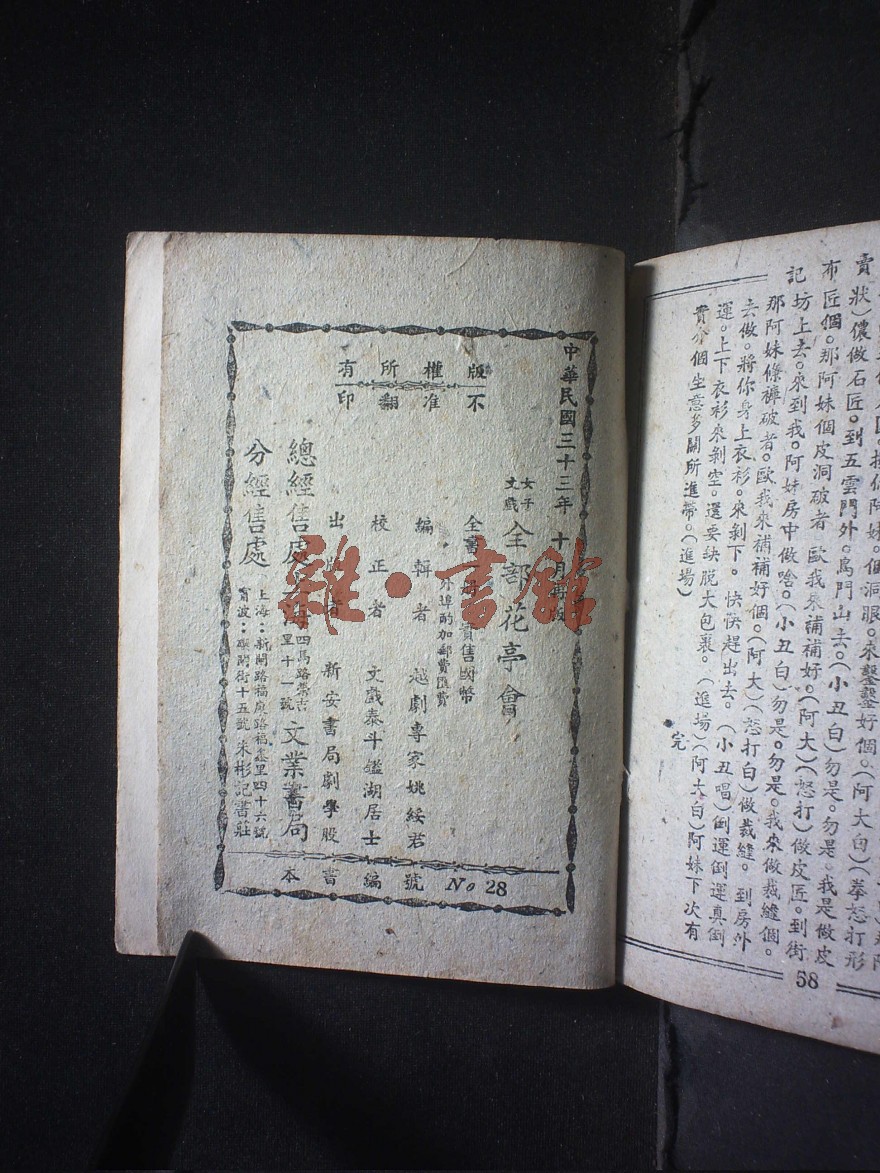 布匠個。那阿妹個皮洞破者 歐我來補補好。(阿大)(怒打)做皮匠。到街
記坊上去。來到我。阿妹房中做啥。(小丑白)勿是。勿是。我來做裁縫個。
那阿妹條褲破者。歐我來補補好個。(阿大)(怒打白)做裁縫。到房外
去做。將你身上衣衫。來剝下。快快趕出去。(小丑唱)倒運倒運真倒
運。上下衣衫來剝空。還要缺脫大包裹。(進場)(阿大白)阿妹下次有
賣介個生意多關所進帶。(進場)
完
58
中華民國三十三年 十月再版
版權所有
不准翻印
女子文戲
全部花亭會
全書 實售國幣
外埠酌加郵費匯費
編輯者 越劇專家姚綏君
校正者 文戲泰斗鑑湖居士
出版者 新安書局劇學股
總經售處 上海四馬路 吉里十一號 文業書局
分經售處 上海：新閘路福康路福 里四十六號
寧波： 街十五號朱彬記書莊
本書編號 No 28
雜·書館